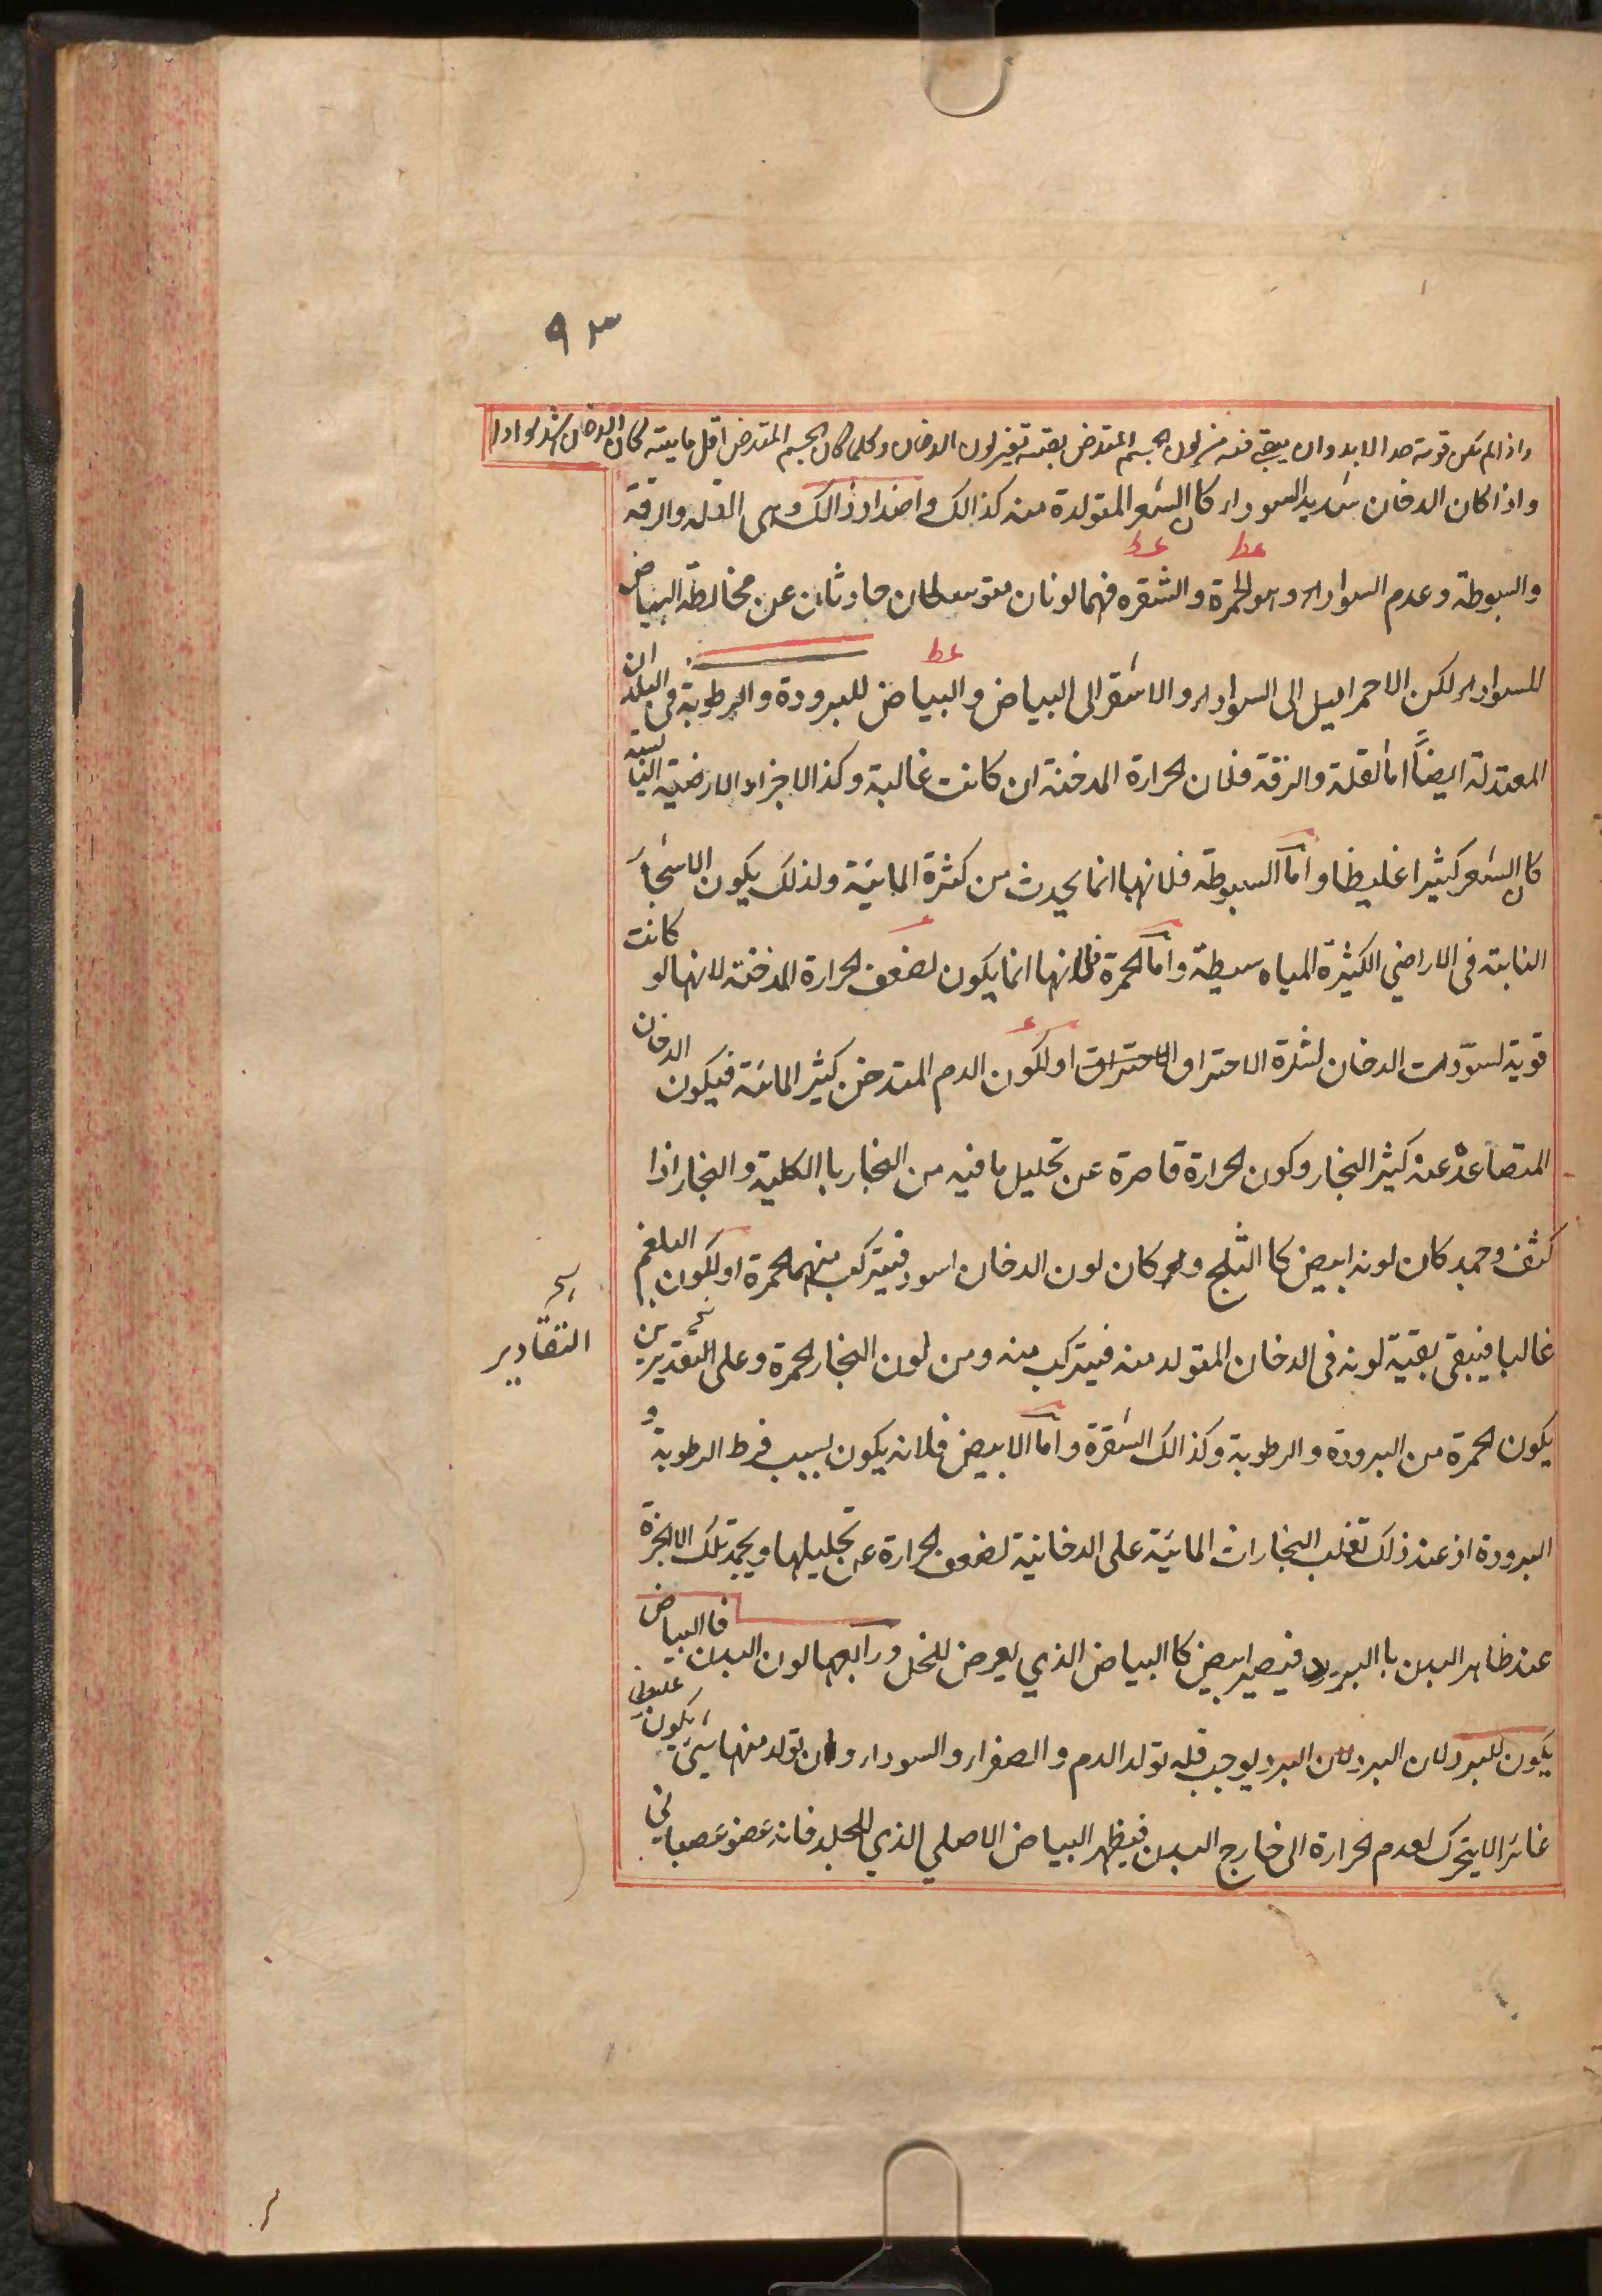 ٩٣
واذا لم تكن قوته جدا لا بد وان يبقى فيه من لون الجسم المتدخن بقية تغير لون الدخان وكلما كان الجسم المتدخن اقل مايية كان الدخان اشد سوادا
واذا كان الدخان شديد السوداء كان الشعر المتولدة منه كذالك واضداد ذالك وهى القلة والرقة
والسبوطة وعدم السواد وهو الحمرة والشقره فهما لونان متوسطان حادثان عن مخالطة البياض
للسواد لكن الاحمر اميل الى السواد والاشقر الى البياض والبياض للبرودة والرطوبة فى البلدان
المعتدلة ايضاً اما لقلة والرقة فلان الحرارة المدخنة ان كانت غالبة وكذا الاجزاء الارضية اليابسة
كان الشعر كثيرا غليظا واما السبوطة فلانها انما يحدث من كثرة المائية ولذلك يكون الاشجار
النابتة فى الاراضي الكثيرة المياه سبطة واما الحمرة فلانها انما يكون لضعف الحرارة المدخنة لانها لو كانت
قوية لسوّدت الدخان لشدة الاحتراق الاحتراق او لكون الدم المتدخن كثير المائية فيكون الدخان
المتصاعد عنه كثير البخار وكون الحرارة قاصرة عن تحليل ما فيه من البخار با الكلية والبخار اذا
كثف وجمد كان لونه ابيض كا الثلج ولو كان لون الدخان اسود فيتركب منهما الحمرة او لكون البلغم
غالبا فيبقى بقية لونه فى الدخان المتولد منه فيتركب منه ومن لون البخار الحمرة وعلى التقديرين
التقادير
يكون الحمرة من البرودة والرطوبة وكذالك الشقرة واما الابيض فلانه يكون بسبب فرط الرطوبة و
البرودة اذ عند ذلك تغلب البخارات المائية على الدخانية لضعف الحرارة عن تحليلها ويجمد تلك الابخرة
عند ظاهر البدن با البرد فيصير ابيض كا البياض الذي يعرض للخل ورابعها لون البدن فا البياض
يكون للبرد لان البرد لان البرد يوجب قله تولد الدم والصفراء والسوداء وان تولد منها شئ يكون
غائرا لا يتحرك لعدم الحرارة الى خارج البدن فيظهر البياض الاصلي الذي للجلد فانه عضو عصبانى